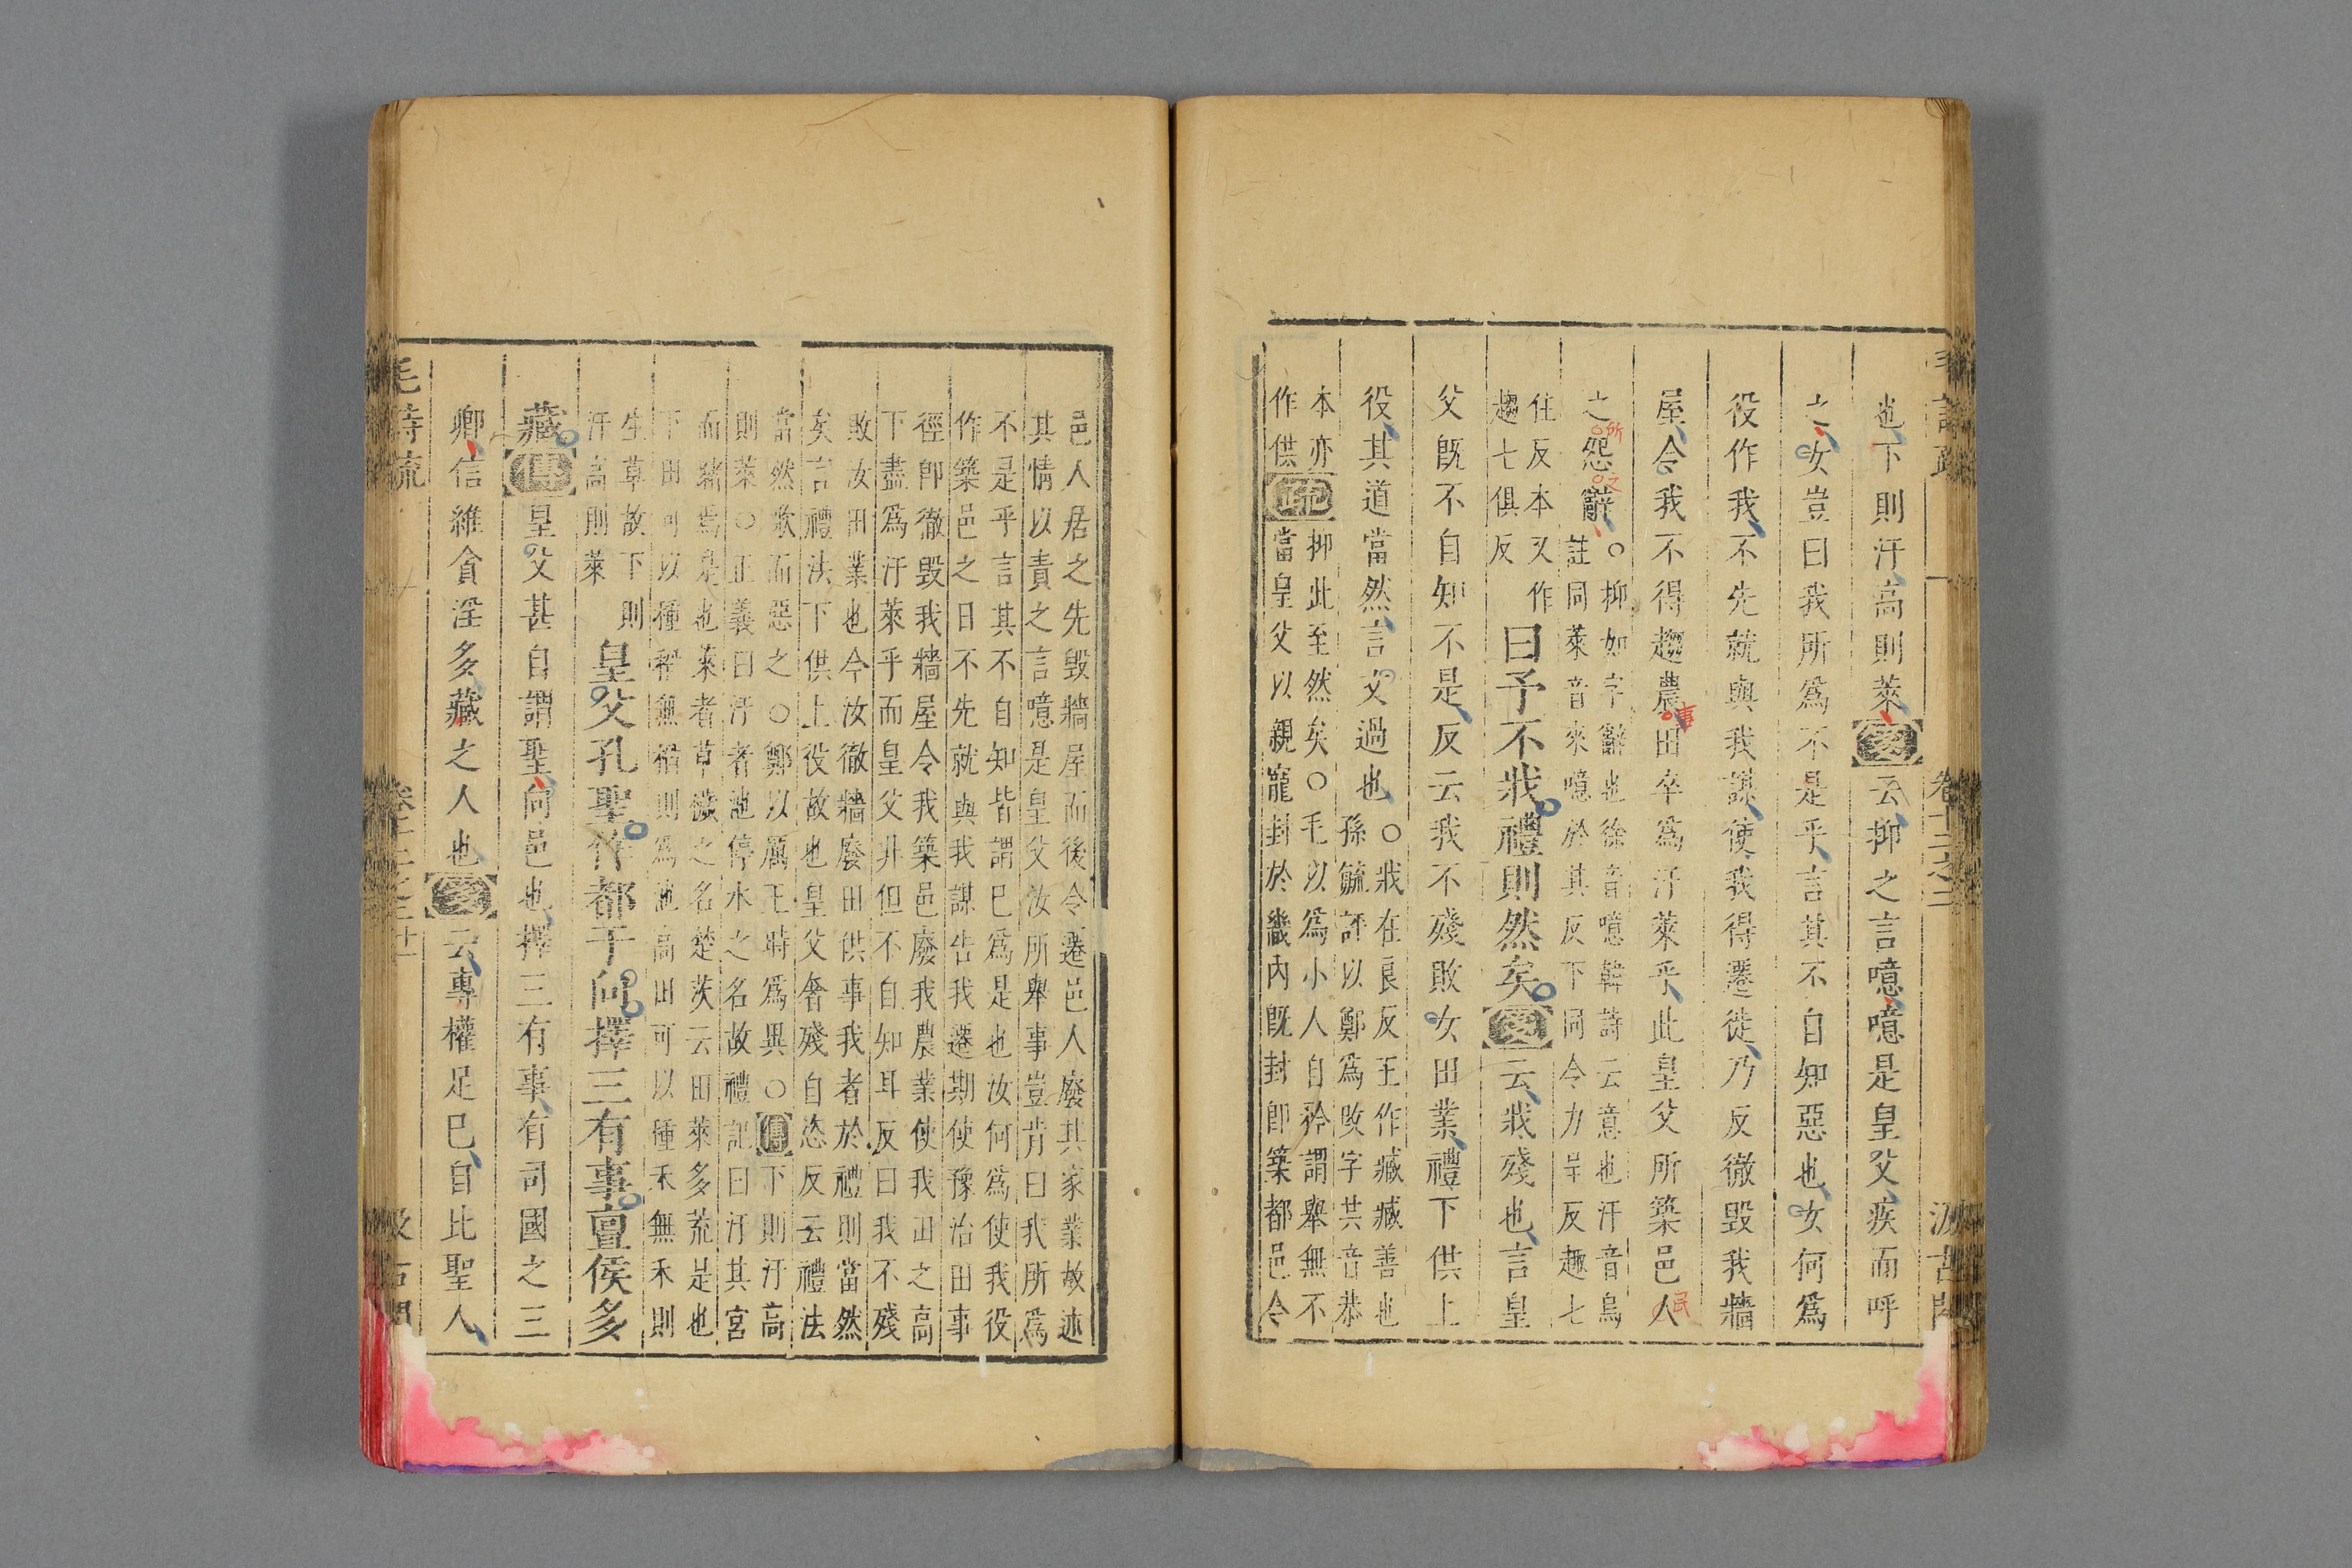 毛詩疏 卷十二之二 汲古閣
也下則汙高則萊箋云抑之言噫噫是皇父疾而呼
之女豈曰我所爲不是乎言其不自知惡也女何爲
役作我不先就與我謀使我得遷徙乃反徹毀我牆
屋令我不得趨農田卒爲汙萊乎此皇父所築邑人
事
民
之怨辭
所
之
○抑如字辭也徐音噫韓詩云意也汙音烏
註同萊音來噫於其反下同令力呈反趣七
住反本又作
趨七俱反
曰予不戕禮則然矣箋云戕殘也言皇
父旣不自知不是反云我不殘敗女田業禮下供上
役其道當然言文過也
○戕在良反王作臧臧善也
孫毓評以鄭爲改字共音恭
本亦
作供
疏
抑此至然矣○毛以爲小人自矜謂舉無不
當皇父以親寵封於畿內旣封卽築都邑令
邑人居之先毀牆屋而後令遷邑人廢其家業故述
其情以責之言噫是皇父汝所舉事豈肯曰我所爲
不是乎言其不自知皆謂已爲是也汝何爲使我役
作築邑之日不先就與我謀告我遷期使豫治田事
徑卽徹毀我牆屋令我築邑廢我農業使我田之高
下盡爲汙萊乎而皇父非但不自知耳反曰我不殘
敗汝田業也今汝徹牆廢田供事我者於禮則當然
矣言禮法下供上役故也皇父奢殘自恣反云禮法
當然歎而惡之○鄭以厲王時爲異○傳下則汙高
則萊○正義曰汙者池停水之名故禮記曰汙其宮
而豬焉是也萊者草穢之名楚茨云田萊多荒是也
下田可以種稻無稻則爲池高田可以種禾無禾則
生草故下則
汙高則萊
皇父孔聖作都于向擇三有事亶侯多
藏傳皇父甚自謂聖向邑也擇三有事有司國之三
卿信維貪淫多藏之人也箋云專權足巳自比聖人
毛詩疏 卷十二之二 廿一 汲古閣